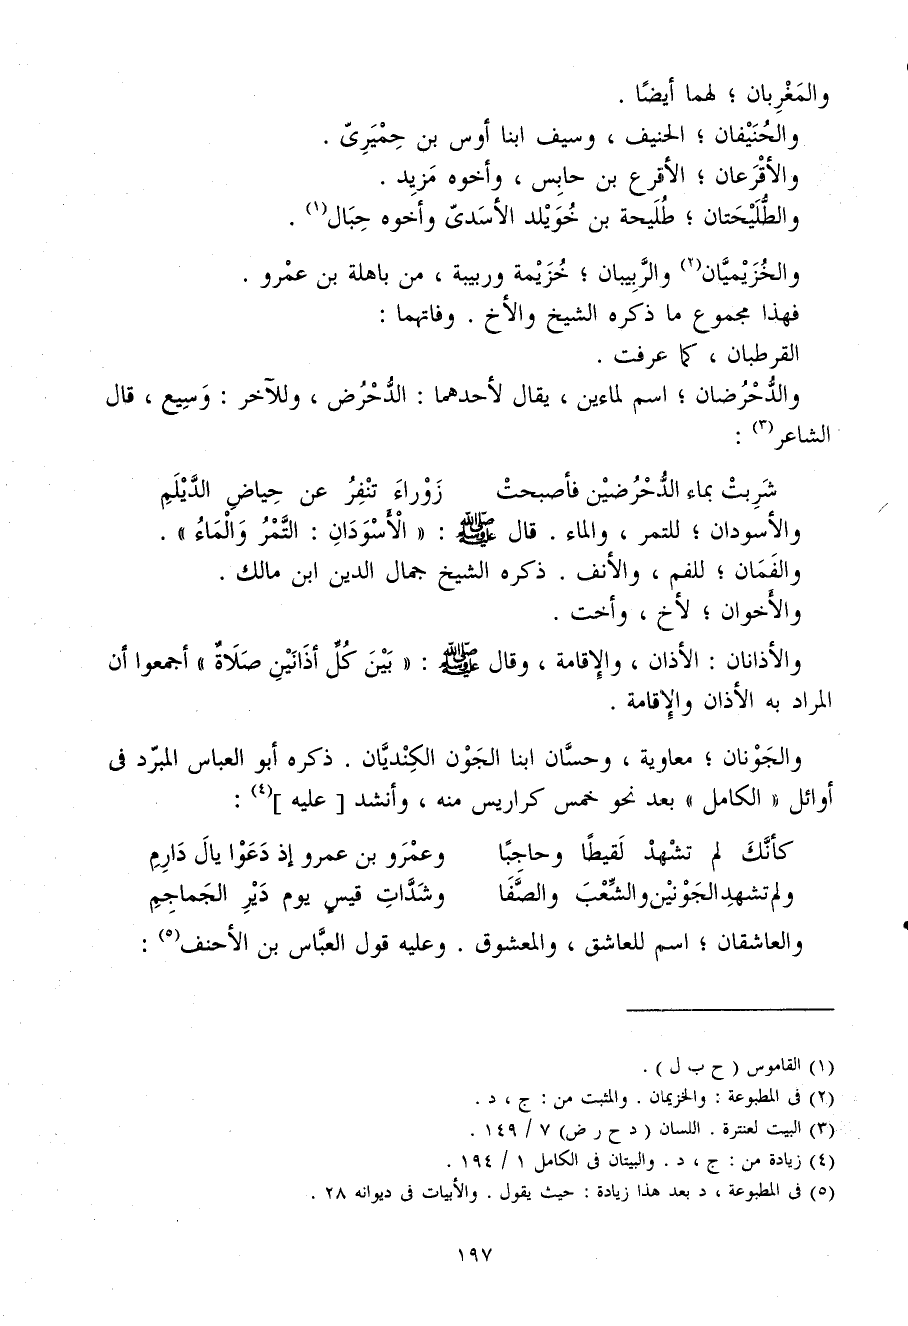 والمَغْرِبان ؛ لهما أيضًا .
والحُنَيْفان ؛ الحنيف ، وسيف ابنا أوس بن حِمْيَرِىّ .
والأقْرَعان ؛ الأقرع بن حابِس ، وأخوه مَزِيد .
والطُّلَيْحَتان ؛ طُلَيحة بن خُوَيْلد الأسَدىّ وأخوه حِبَال(١) .
والخُزَيْميَّان(٢) والرَّبِيبان ؛ خُزَيْمة وربيبة ، من باهلة بن عمْرو .
فهذا مجموع ما ذكره الشيخ والأخ . وفاتهما :
القرطبان ، كما عرفت .
والدُّحْرُضان ؛ اسم لماءين ، يقال لأحدهما : الدُّحْرُض ، وللآخر : وَسِيع ، قال
الشاعر(٣) :
شَرِبتْ بماء الدُّحْرُضيْن فأصبحتْ زَوْراءَ تنْفِرُ عن حِياضِ الدَّيْلَمِ
والأسودان ؛ للتمر ، والماء . قال ﷺ : « الْأَسْوَدَانِ : التَّمْرُ وَالْمَاءُ » .
والفَمَان ؛ للفم ، والأنف . ذكره الشيخ جمال الدين ابن مالك .
والأَخوان ؛ لأخ ، وأخت .
والأذانان : الأذان ، والإقامة ، وقال ﷺ : « بَيْنَ كُلِّ أذَانَيْنِ صَلَاةٌ » أجمعوا أن
المراد به الأذان والإقامة .
والجَوْنان ؛ معاوية ، وحسَّان ابنا الجَوْن الكِنْديَّان . ذكره أبو العباس المبرّد فى
أوائل « الكامل » بعد نحو خمس كراريس منه ، وأنشد [ عليه ](٤) :
كأنَّكَ لم تشْهدْ لَقيطًا وحاجِبًا وعمْرَو بن عمرو إذ دَعَوْا يالَ دَارِمِ
ولم تشهدِ الجَوْنيْن والشِّعْبَ والصَّفَا وشَدَّاتِ قيسٍ يوم دَيْرِ الجَماجِمِ
والعاشقان ؛ اسم للعاشق ، والمعشوق . وعليه قول العبَّاس بن الأحنف(٥) :
(١) القاموس ( ح ب ل ) .
(٢) فى المطبوعة : والخزيمان . والمثبت من : ج ، د .
(٣) البيت لعنترة . اللسان ( د ح ر ض ) ٧ / ١٤٩ .
(٤) زيادة من : ج ، د . والبيتان فى الكامل ١ / ١٩٤ .
(٥) فى المطبوعة ، د بعد هذا زيادة : حيث يقول . والأبيات فى ديوانه ٢٨ .
١٩٧